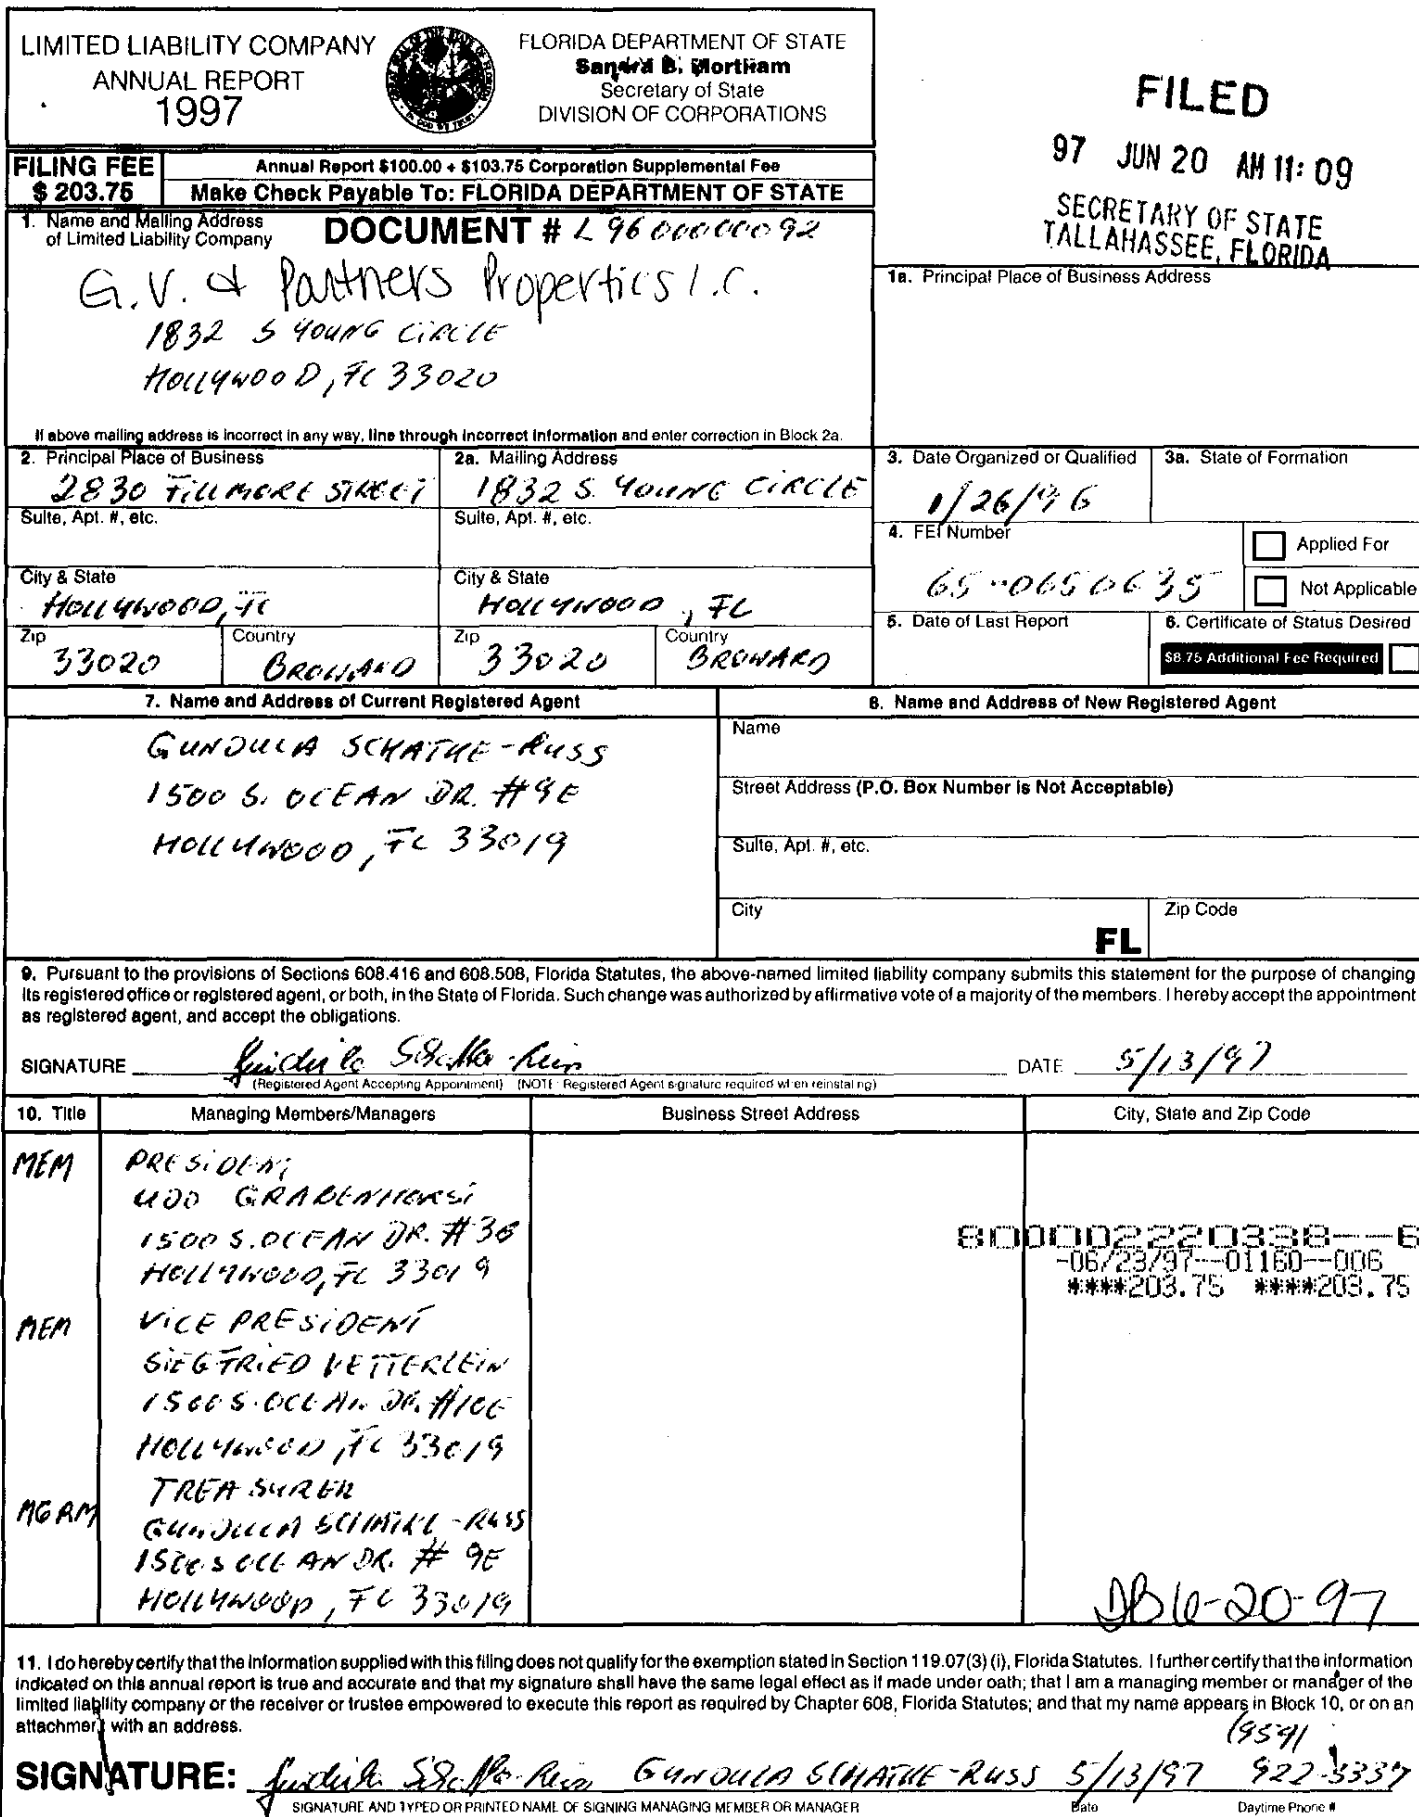 LIMITED LIABILITY COMPANY
ANNUAL REPORT
1997
FLORIDA DEPARTMENT OF STATE
Sandra B. Mortham
Secretary of State
DIVISION OF CORPORATIONS
FILED
97 JUN 20 AM 11: 09
SECRETARY OF STATE
TALLAHASSEE, FLORIDA
FILING FEE
$ 203.75
Annual Report $100.00 + $103.75 Corporation Supplemental Fee
Make Check Payable To: FLORIDA DEPARTMENT OF STATE
1. Name and Mailing Address
of Limited Liability Company
DOCUMENT # L96000000092
G.V. & Partners Properties l.C.
1832 S YOUNG CIRCLE
HOLLYWOOD, FL 33020
If above mailing address is incorrect in any way, line through incorrect information and enter correction in Block 2a.
1a. Principal Place of Business Address
2. Principal Place of Business
2830 FILLMORE STREET
Suite, Apt. #, etc.
City & State
HOLLYWOOD, FL
Zip
33020
Country
BROWARD
2a. Mailing Address
1832 S. YOUNG CIRCLE
Suite, Apt. #, etc.
City & State
HOLLYWOOD, FL
Zip
33020
Country
BROWARD
3. Date Organized or Qualified
1/26/96
3a. State of Formation
4. FEI Number
65-0650635
Applied For
Not Applicable
5. Date of Last Report
6. Certificate of Status Desired
$8.75 Additional Fee Required
7. Name and Address of Current Registered Agent
GUNDULA SCHATKE-RUSS
1500 S. OCEAN DR. #9E
HOLLYWOOD, FL 33019
8. Name and Address of New Registered Agent
Name
Street Address (P.O. Box Number is Not Acceptable)
Suite, Apt. #, etc.
City
FL
Zip Code
9. Pursuant to the provisions of Sections 608.416 and 608.508, Florida Statutes, the above-named limited liability company submits this statement for the purpose of changing
its registered office or registered agent, or both, in the State of Florida. Such change was authorized by affirmative vote of a majority of the members. I hereby accept the appointment
as registered agent, and accept the obligations.
SIGNATURE Gundula Schatke-Russ DATE 5/13/97
(Registered Agent Accepting Appointment) (NOTE: Registered Agent signature required when reinstating)
10. Title
Managing Members/Managers
Business Street Address
City, State and Zip Code
MEM PRESIDENT
UDO GRABENHORST
1500 S. OCEAN DR.
HOLLYWOOD, FL 33019
800002220338--6
-06/23/97--01160--006
****203.75 ****203.75
MEM VICE PRESIDENT
SIEGFRIED VETTERLEIN
1500 S. OCEAN DR. #10E
HOLLYWOOD, FL 33019
MGRM TREASURER
GUNDULA SCHATKE-RUSS
1500 S OCEAN DR. # 9E
HOLLYWOOD, FL 33019
DB 6-20-97
11. I do hereby certify that the information supplied with this filing does not qualify for the exemption stated in Section 119.07(3) (i), Florida Statutes. I further certify that the information
indicated on this annual report is true and accurate and that my signature shall have the same legal effect as if made under oath; that I am a managing member or manager of the
limited liability company or the receiver or trustee empowered to execute this report as required by Chapter 608, Florida Statutes; and that my name appears in Block 10, or on an
attachment with an address.
(954)
SIGNATURE: Gundula Schatke-Russ GUNDULA SCHATKE-RUSS 5/13/97 922-3337
SIGNATURE AND TYPED OR PRINTED NAME OF SIGNING MANAGING MEMBER OR MANAGER
Date
Daytime Phone #